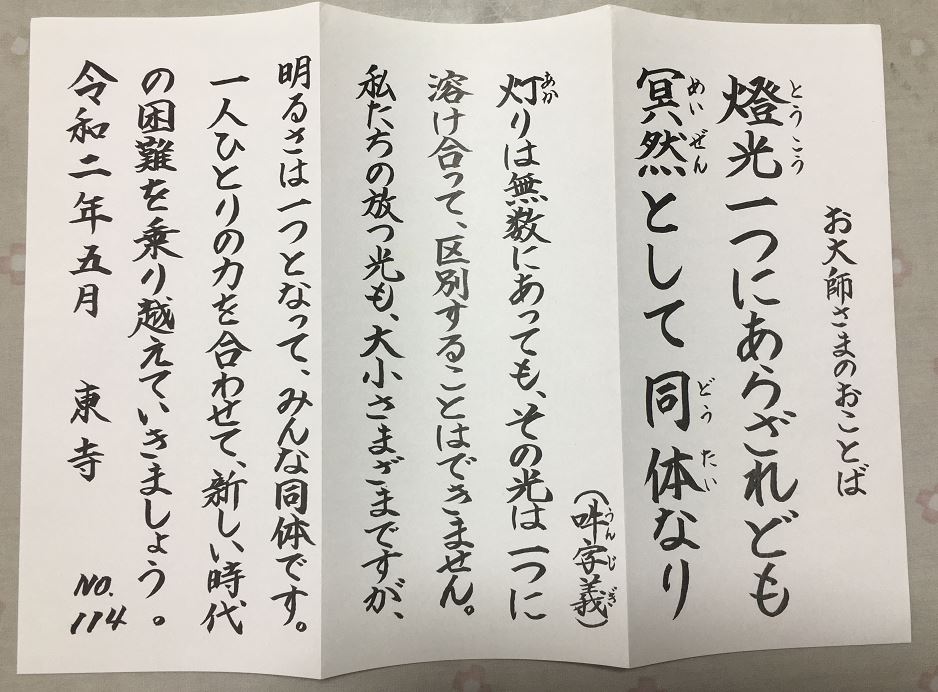 お大師さまのおことば
燈光一つにあらざれども
とうこう
冥然として同体なり
めいぜん どうたい
(吽字義)
うんじぎ
灯りは無数にあっても、その光は一つに
あか
溶け合って、区別することはできません。
私たちの放つ光も、大小さまざまですが、
明るさは一つとなって、みんな同体です。
一人ひとりの力を合わせて、新しい時代
の困難を乗り越えていきましょう。
令和二年五月 東寺 NO.114